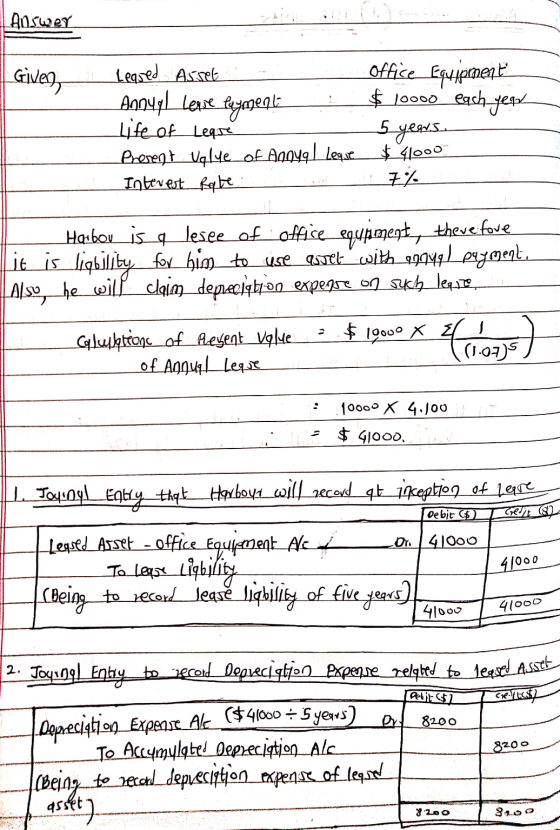 Answer
Given, Leased Asset Office Equipment
Annual Lease Payment $ 10000 each year
Life of Lease 5 years.
Present Value of Annual Lease $ 41000
Interest Rate 7%
Harbou is a lesee of office equipment, therefore
it is liability for him to use asset with annual payment.
Also, he will claim depreciation expense on such lease.
Calculations of Present Value = $ 10000 X Σ(1/(1.07)5)
of Annual Lease
= 10000 X 4.100
= $ 41000.
1. Journal Entry that Harbour will record at inception of lease
Debit ($) Credit ($)
Leased Asset - Office Equipment A/c Dr. 41000
To Lease Liability 41000
(Being to record lease liability of five years)
41000 41000
2. Journal Entry to record Depreciation Expense related to leased Asset
Debit ($) Credit ($)
Depreciation Expense A/c ($41000 ÷ 5 years) Dr. 8200
To Accumulated Depreciation A/c 8200
(Being to record depreciation expense of leased
asset) 8200 8200